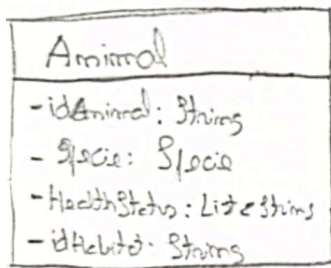 Animal
- idAnimal: String
- Specie: Specie
- HealthStatus: List<String>
- idHabitat: String